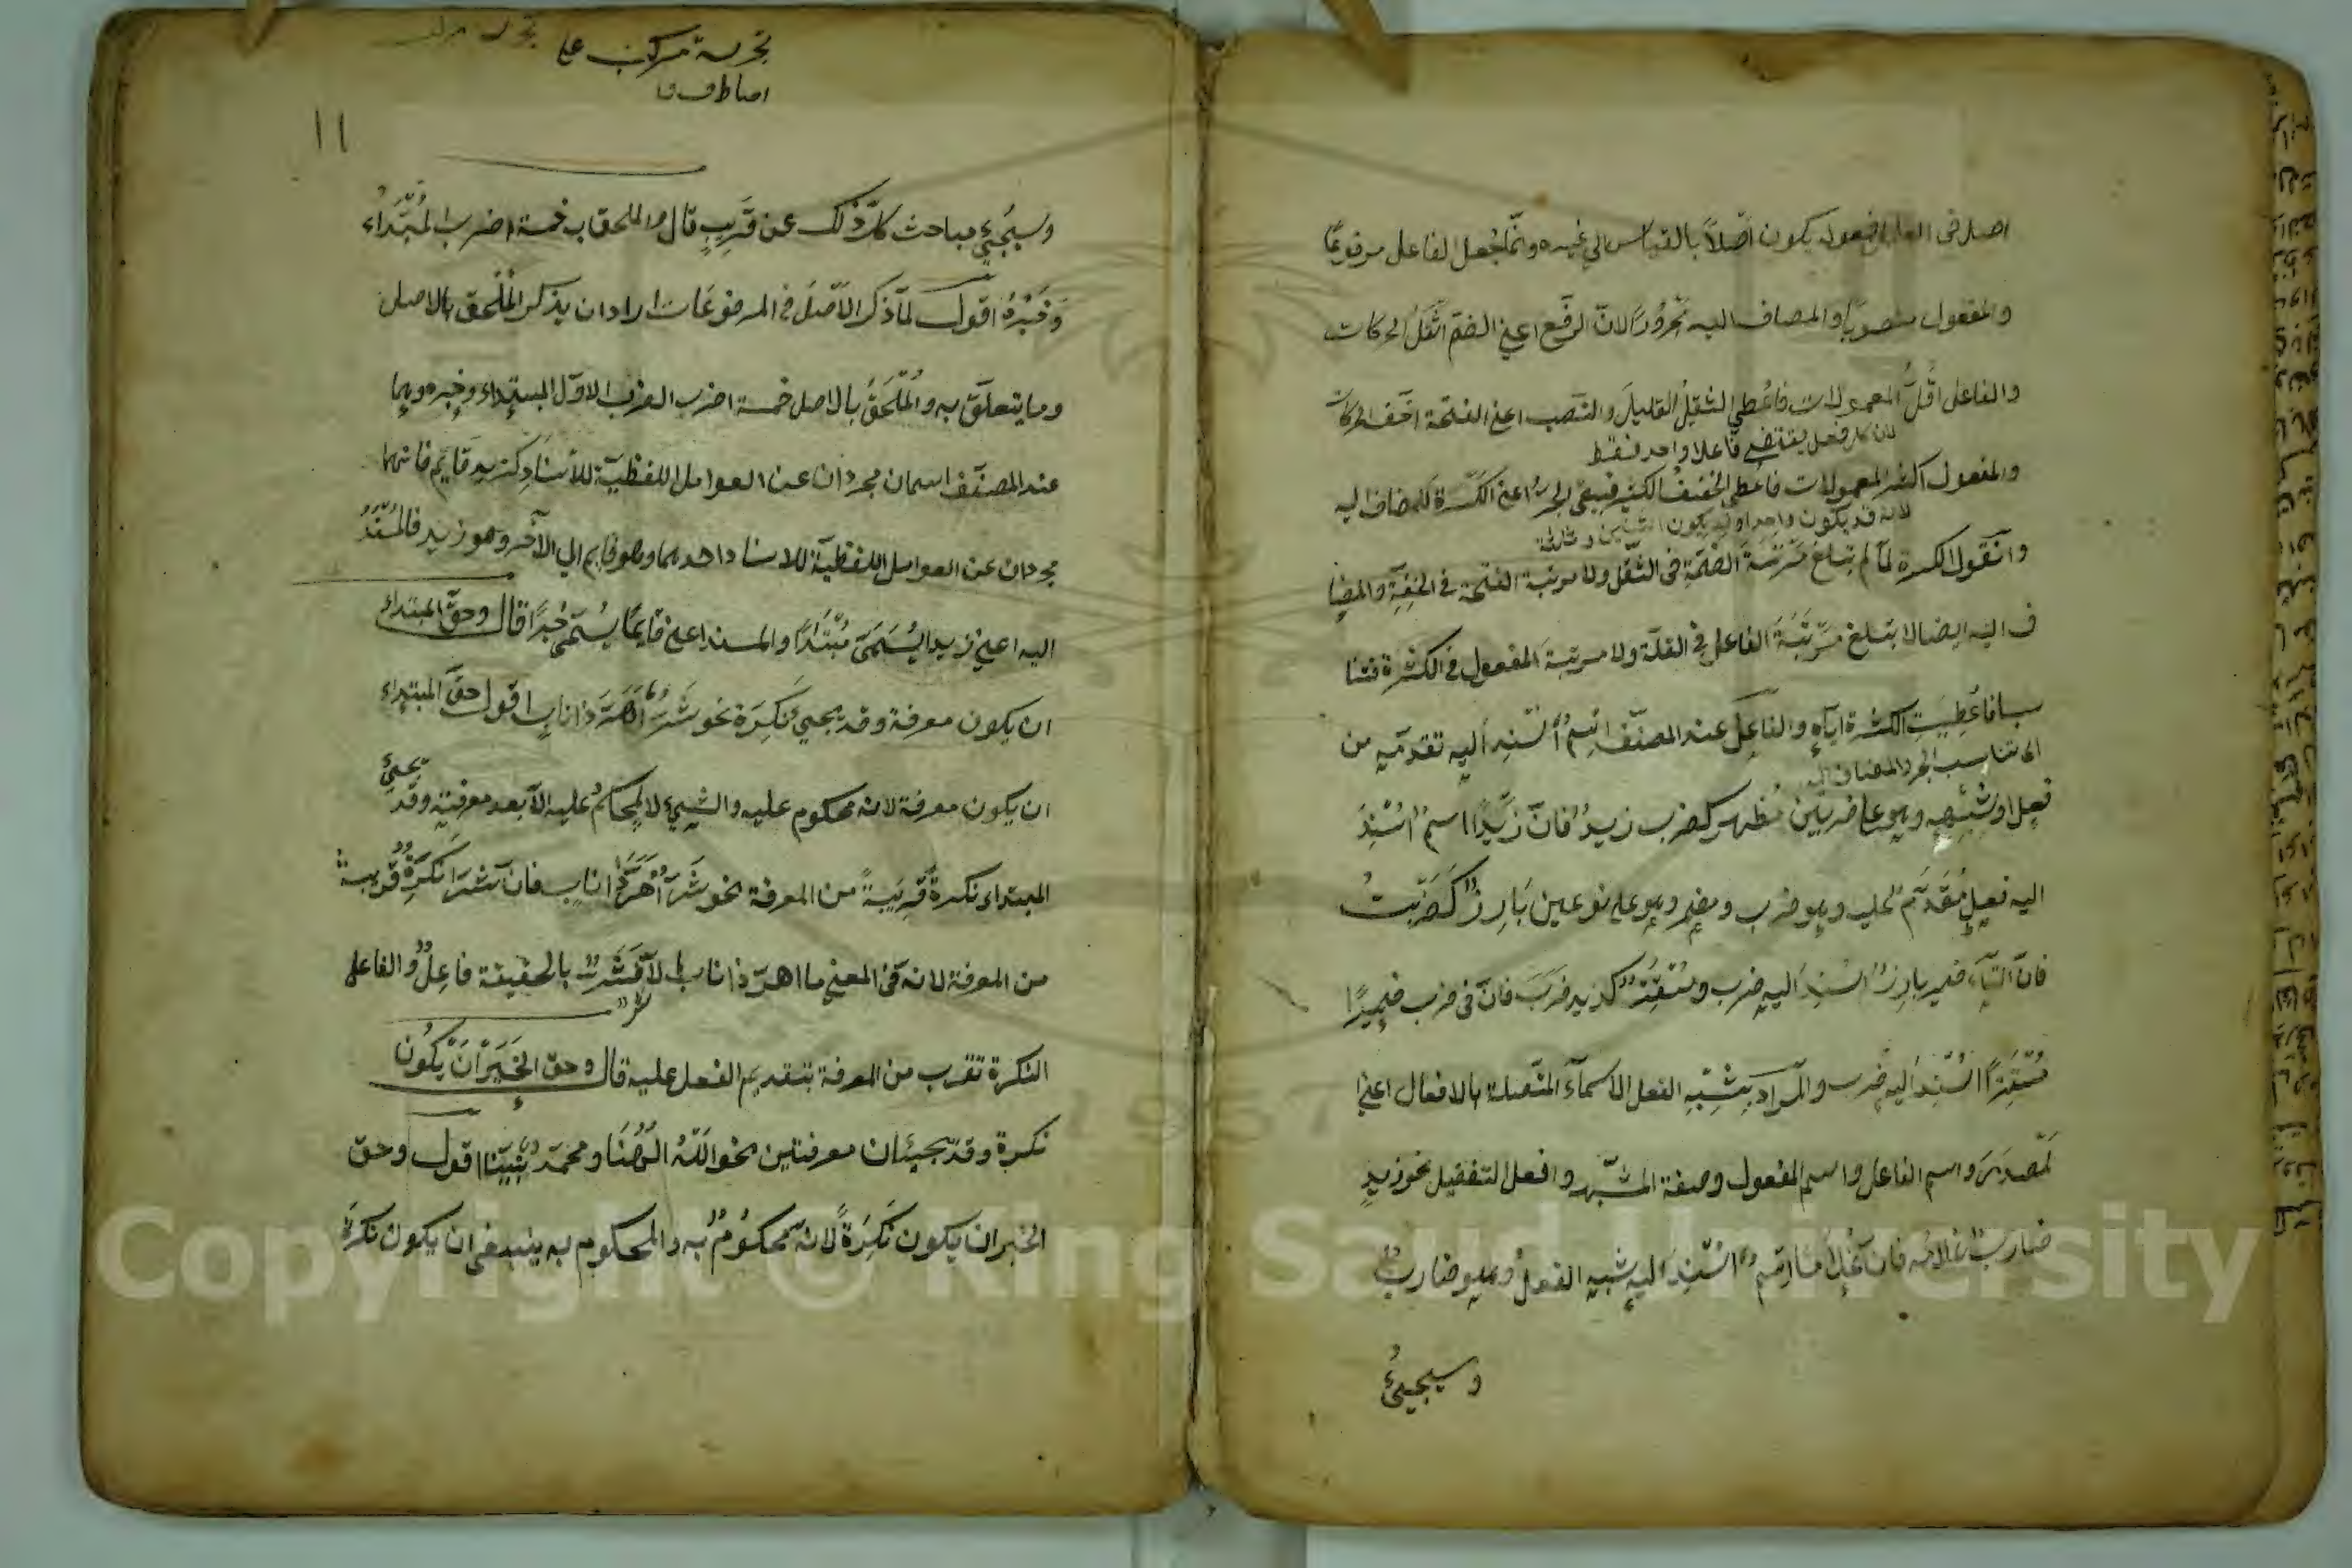 اصل فى العمل فمعوله يكون اصلاً بالقياس الي غيره وانّما جُعل الفاعل مرفوعًا
والمفعول منصوبا والمضاف اليه مجرُورًا لانّ الرفع اعني الضمّ اثقلُ الحركات
والفاعل اقلُّ المعمولات فاعُطي الثقيلُ القليلَ والنّصب اعني الفتحة اخفّ الحركات
لان كل فعل يقتضي فاعلا واحد فقط
والمفعول اكثر المعمولات فاعُطي الخفيفُ الكثيرَ فبقي الجرُّ اعني الكسرة للمضاف اليه
لانه قد يكون واحدا وقد يكون اثنين وثلاثة
وانقول الكسرة لمّا لم تبلغ مَرْتَبَةَ الضمّةِ فى الثقل ولا مرتبة الفتحة فى الخفّةِ والمضا
ف اليه ايضا لا تبلغ مَرْتَبَةَ الفاعل في القلّة ولا مرتبة المفعول في الكثرة فتنا
سبا فاعُطِيَتِ الكسرة ايّاهِ والفاعِلُ عند المصنّف اِسْمٌ اُسْنِدَ اليه تقدّمه من
اى تناسب الجر والمضاف اليه
فعِل او شِبْهِهِ وهو على ضربَيْن مُظهر كضرب زيدٌ فانّ زَيْدًا اسمٌ اُسْنِدَ
اليه فعِلٌ مُقَدَّمٌ عليه وهو ضرب ومضمر وهو على نوعين بَارِزٌ كَضَرَبْتُ
فانّ التّاء ضمير بارِزٌ اُسْنِدَ اليه ضرب ومُسْتَتِرٌ كزيد ضَرَبَ فانّ فى ضرب ضميرًا
مُسْتَتِرًا اُسْنِدَ اليه ضرب والمراد بِشِبْهِ الفعل الاسماء المتّصلة بالافعال اعني
لمصدَرَ واسم الفاعل واسم المفعول وصفة المشبّهة وافعل التفضيل نحو زيد
ضاربٌ غلامُه فانّ غُلَامَا اِسْمٌ اُسْنِدَ اليه شبه الفعل وهو ضاربٌ
وسيجيئُ
١١
وسيجيئُ مباحث كلّ ذلك عن قَرِيبٍ قال والملحق به خمسة اضرب المُبْتَدَاءُ
وَخَبَرُهُ اقول لمّا ذكر الاَصْلَ فى المرفوعَات اراد ان يذكر المُلْحَق بالاصل
وما يتعلّق به والمُلْحَقُ بالاصل خمسة اضرب الضرب الاوّل المبتداء وخبره وهما
عند المصنّف اسمان مجرّدان عن العوامل اللفظيّة للأسنادِ كزيد قايم فانهما
مجردان عن العوامل اللفظيّة للاسناد احدهما وهو قايم الي الآخر وهو زيد فالمُسْنَدُ
اليه اعني زيدا يُسَمَّى مُبْتَدَاً والمسند اعني قايمًا يُسَمَّى خَبَرًا قال وحقّ المبتداء
ان يكون معرفة وقد يجيئُ نَكِرَة نحو شَرٌّ اَهَرَّ ذا ناب اقول حقّ المبتداء
ان يكون معرفة لانه محكوم عليه والشيئ لا يُحْكَمُ عليه الاّ بعد معرفته وقد يجيئُ
المبتداء نكرةً قَرِيبَةً من المعرفة نحو شَرٌّ اَهَرَّ ذا ناب فان شرا نَكِرَةٌ قريبةٌ
من المعرفة لانه فى المعني ما اهرّ ذا ناب الاّ شَرٌّ فشرٌّ بالحقيقة فاعِلٌ والفاعل
النكرة تقرب من المعرفة بتقديم الفعل عليه قال وحق الخَبَرِ اَنْ يكُونَ
نكرة وقد يجيئان معرفتين نحو اللهُ اِلَهُنَا ومحمدٌ نَبِيُّنَا اقول وحق
الخبر ان يكون نَكِرَةً لانّه محكُومٌ به والمحكوم به ينبغى ان يكون نكرَة
Copyright © King Saud University
1957